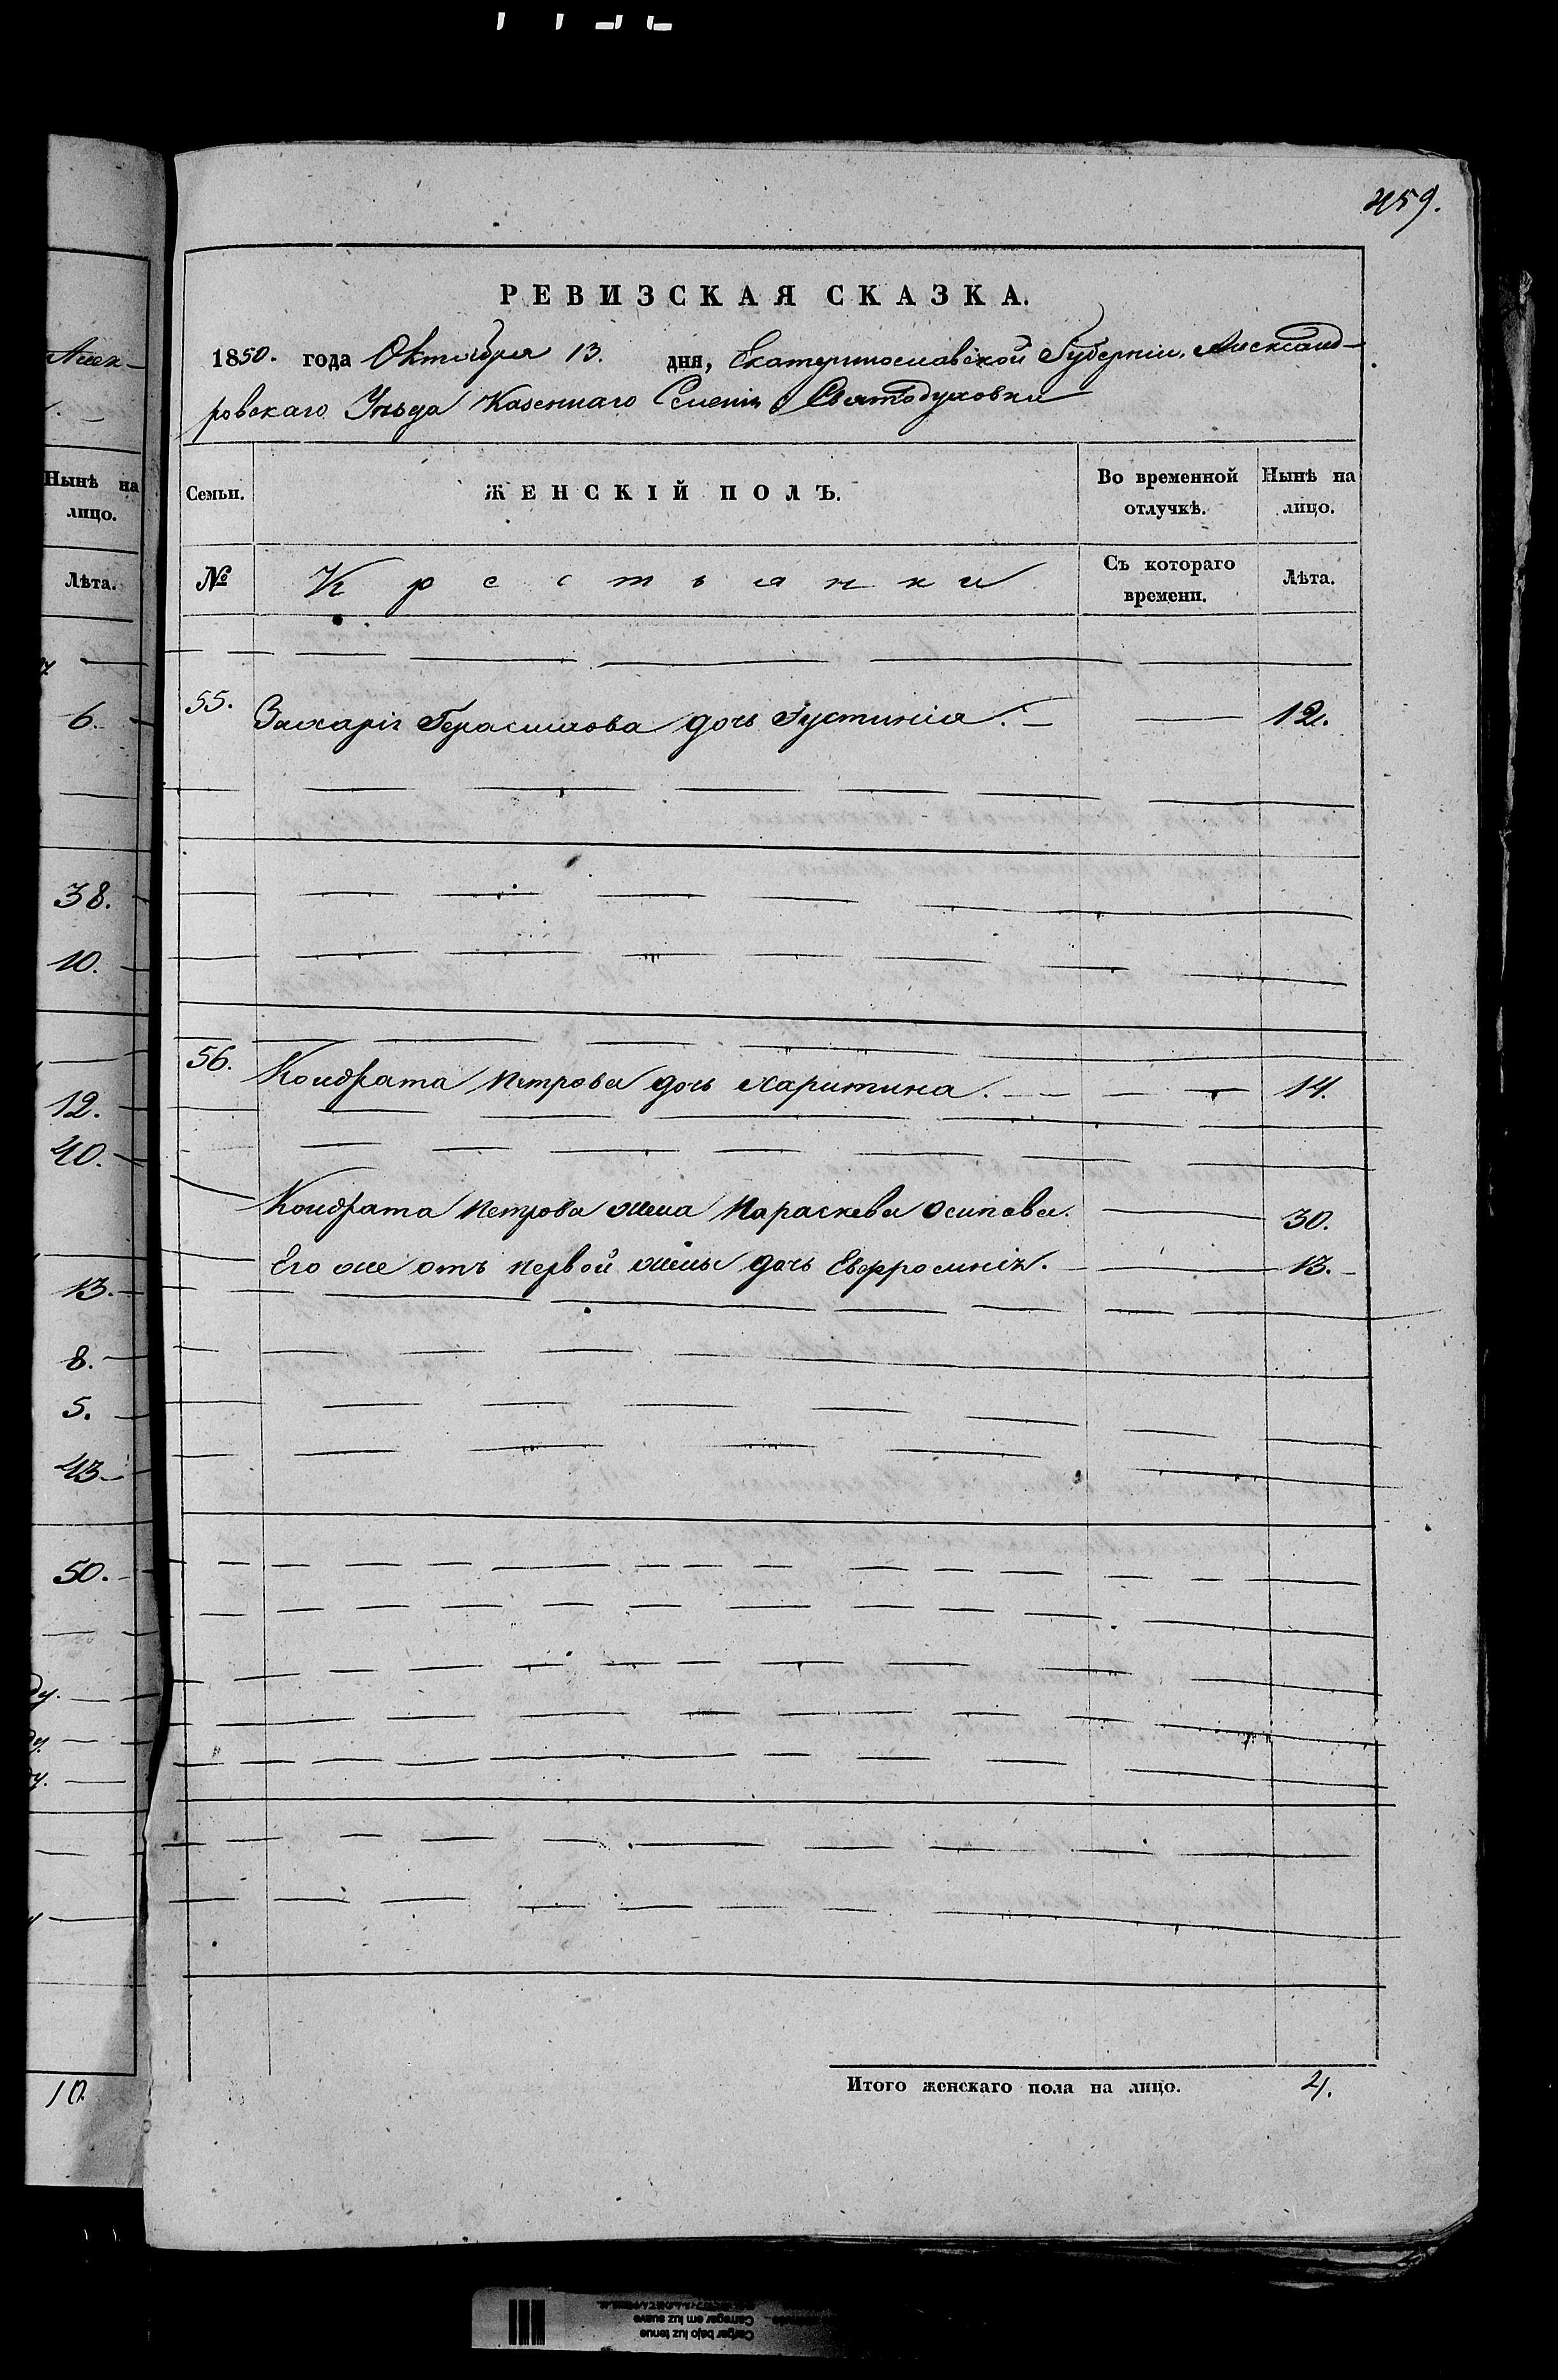 459.
РЕВИЗСКАЯ СКАЗКА.
1850. года Октября 13. дня, Екатеринославской Губерніи, Александ-
ровскаго Уѣзда Казеннаго Селенія Святодуховки
Семьи.
ЖЕНСКІЙ ПОЛЪ.
Во временной отлучкѣ.
Нынѣ на лицо.
№
Крестьянки
Съ котораго времени.
Лѣта.
55. Захарія Герасимова дочь Іустинія. 12.
56. Кондрата Петрова дочь Харитина. 14.
Кондрата Петрова жена Параскева Осипова. 30.
Его же отъ первой жены дочь Евфросинія. 13.
Итого женскаго пола на лицо. 4.
Алек-
Нынѣ на
лицо.
Лѣта.
6.
38.
10.
12.
40.
13.
8.
5.
43
50.
10.
Cargar bajo luz tenue
Carregar em luz suave